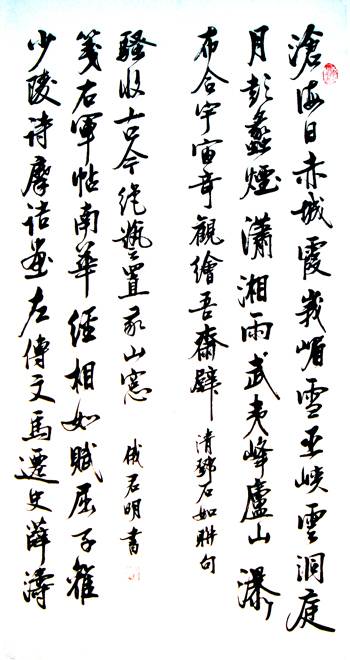 滄海日赤城霞峩嵋雪巫峽雲洞庭
月彭蠡煙瀟湘雨武夷峰廬山瀑
布合宇宙奇觀繪吾齋壁
清鄧石如聯句
少陵詩摩詰畫左傳文馬遷史薛濤
箋右軍帖南華經相如賦屈子離
騷收古今絕藝置我山窓
君明書